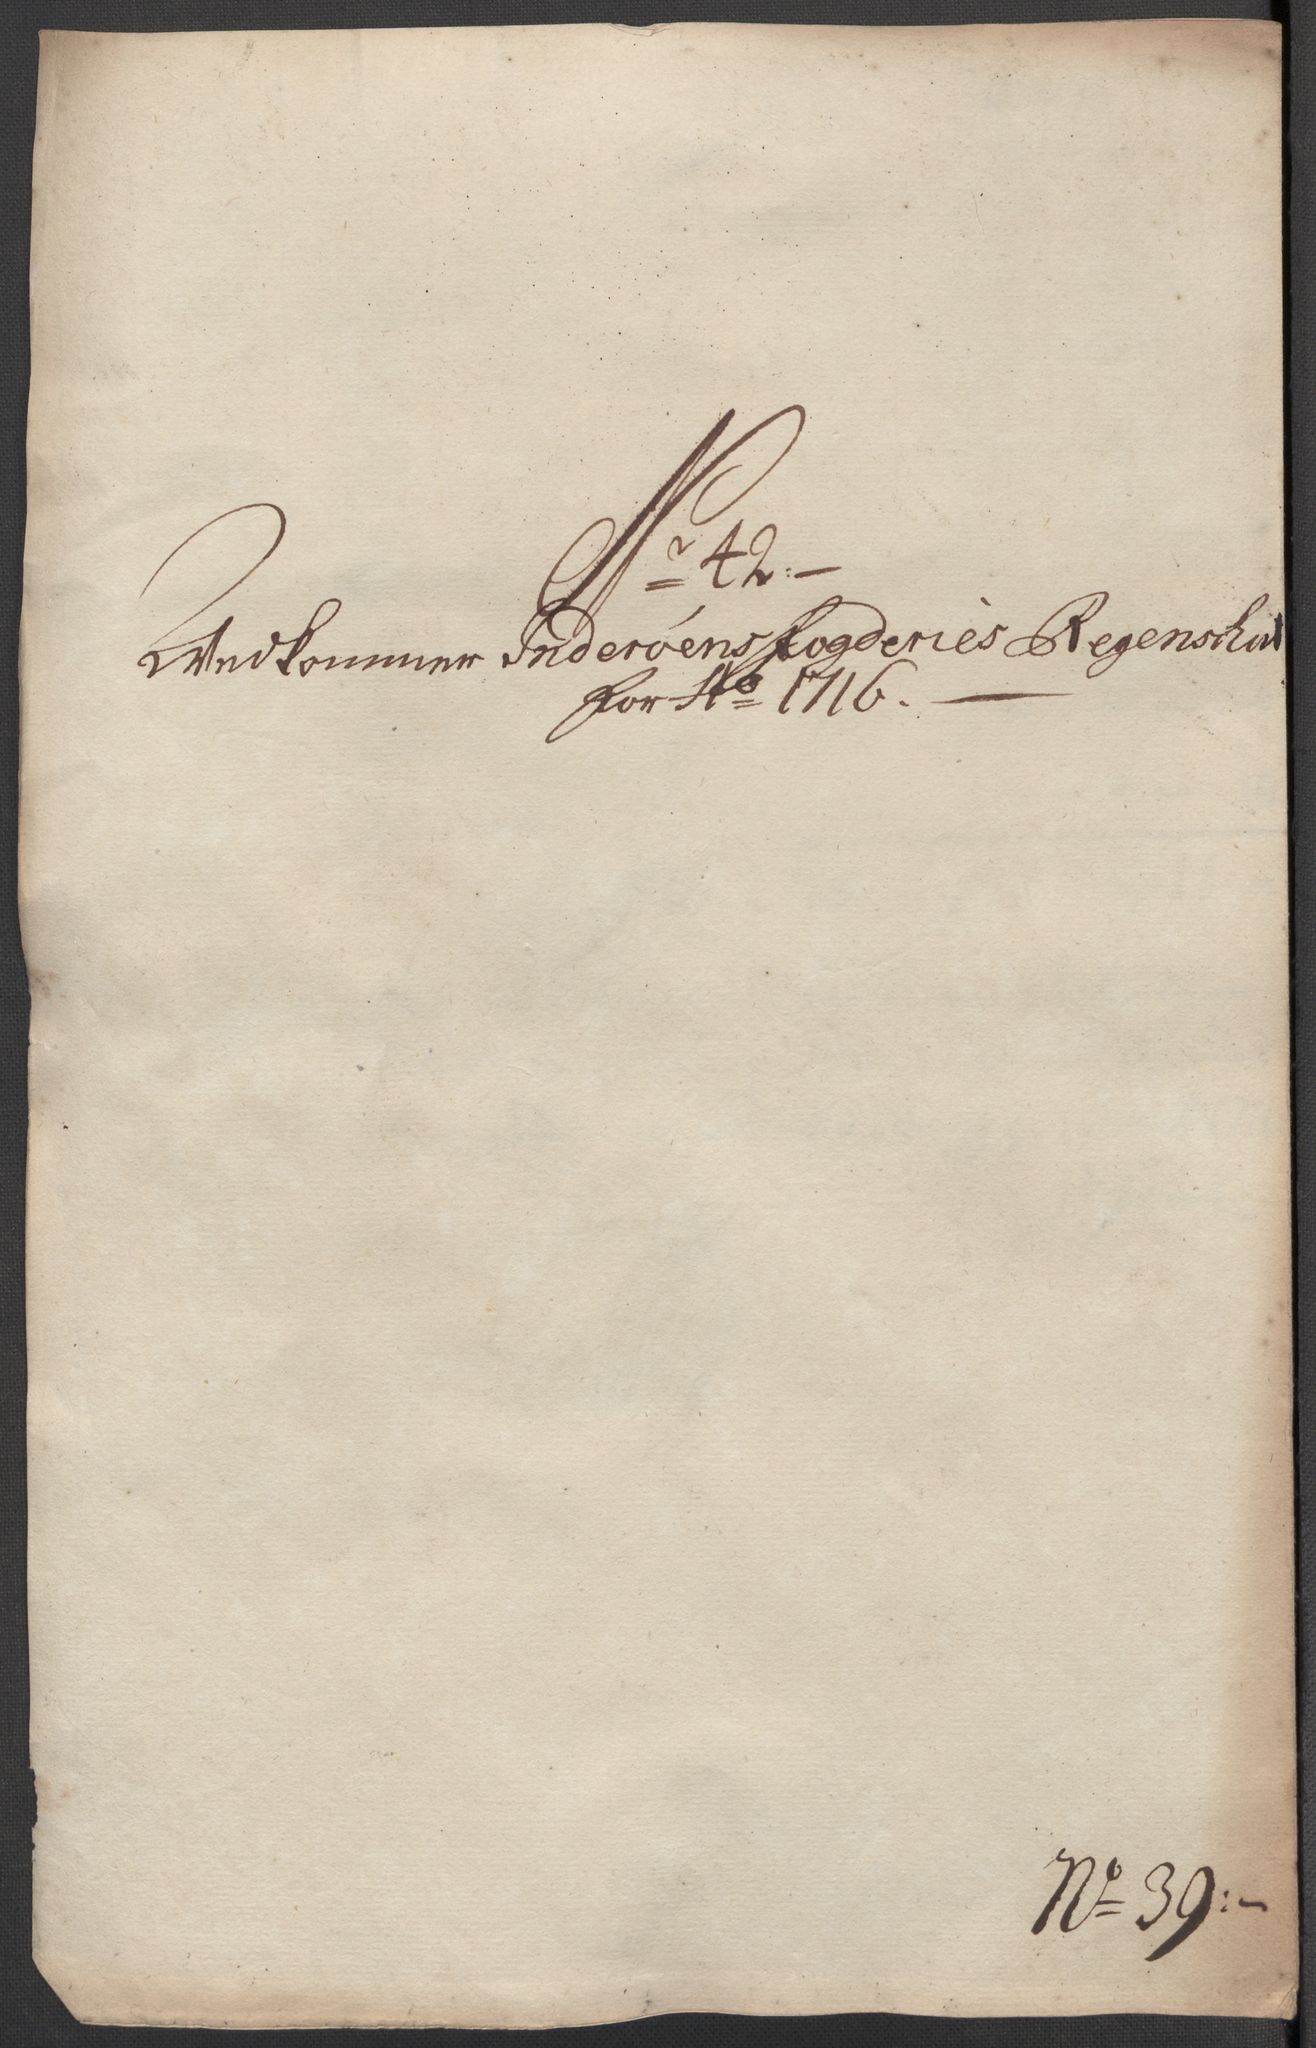 Nr 42:—
Vedkommer Inderöens fogderies Regenschab
for Ao 1716. —
No 39:—